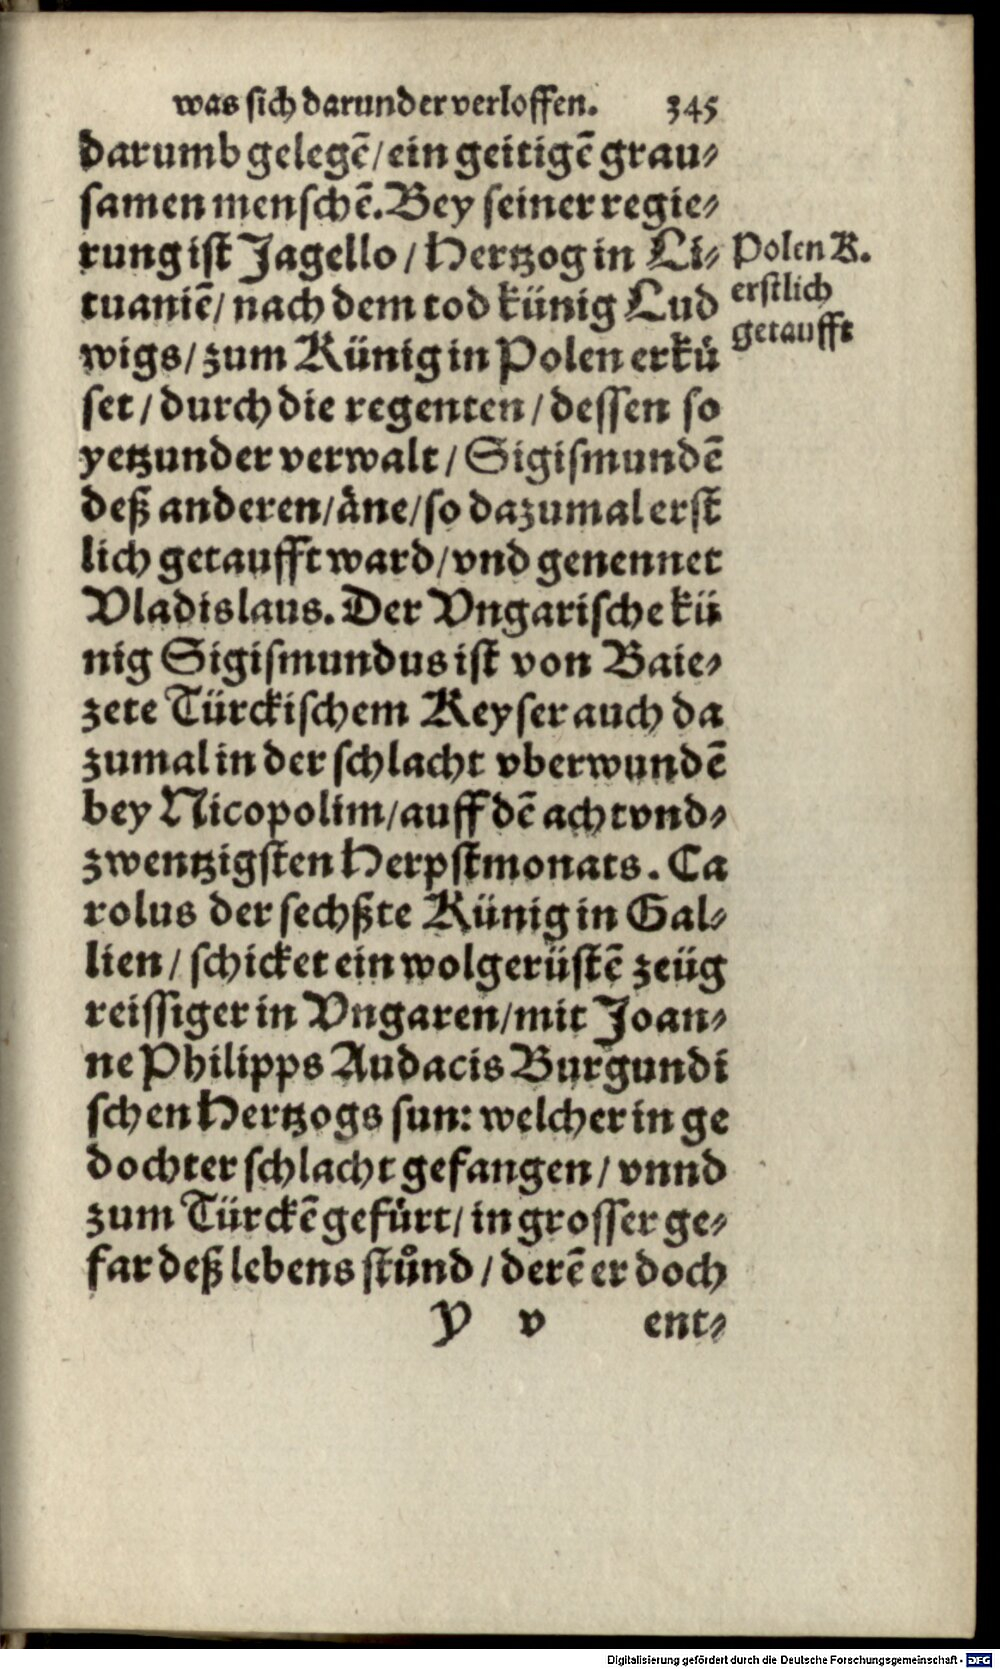 was sich darunder verloffen. 345
darumb gelegē/ ein geitigē grau⸗
samen menschē. Bey seiner regie⸗
rung ist Jagello / Hertzog in Li⸗
tuaniē/ nach dem tod künig Lud
wigs/ zum Künig in Polen erkü
set / durch die regenten / dessen so
yetzunder verwalt / Sigismundē
deß anderen/ äne/ so dazumal erst
lich getaufft ward/ vnd genennet
Vladislaus. Der Vngarische kü
nig Sigismundus ist von Baie⸗
zete Türckischem Keyser auch da
zumal in der schlacht vberwundē
bey Nicopolim/ auff dē acht vnd⸗
zwentzigsten Herpstmonats. Ca
rolus der sechßte Künig in Gal⸗
lien / schicket ein wolgerüstē zeüg
reissiger in Vngaren/ mit Joan⸗
ne Philipps Audacis Burgundi
schen Hertzogs sun: welcher in ge
dochter schlacht gefangen / vnnd
zum Türckē gefürt/ in grosser ge⸗
far deß lebens stůnd / derē er doch
Y v ent⸗
Polen K.
erstlich
getaufft
Digitalisierung gefördert durch die Deutsche Forschungsgemeinschaft - DFG